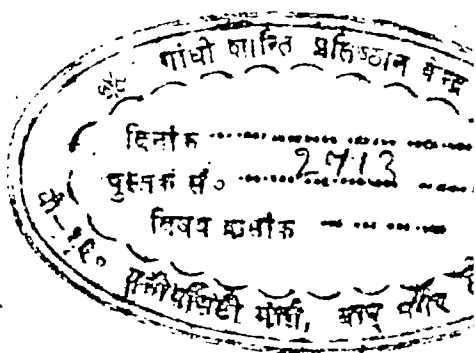 गांधी शान्ति प्रतिष्ठान केन्द्र
दिनांक
पुस्तक सं० 2713
विषय क्रमांक
मार्ग, बापू नगर